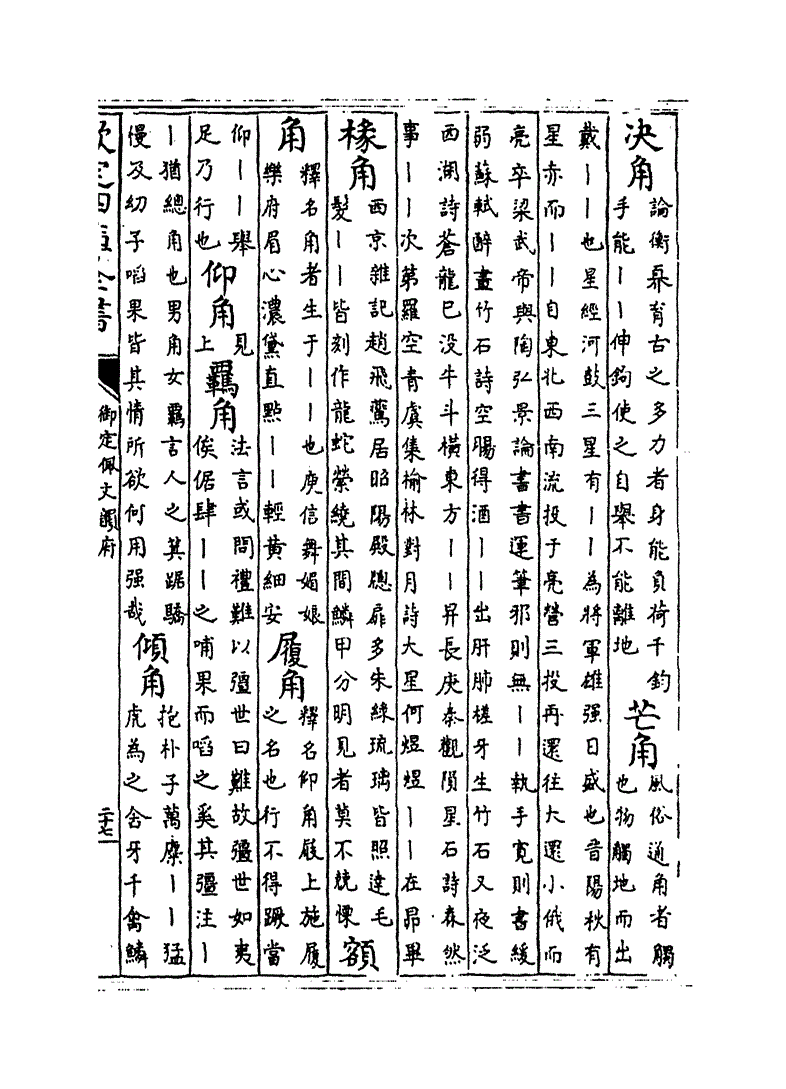 決角
論衡桼育古之多力者身能負荷千鈞
手能丨丨伸鉤使之自舉不能離地
芒角
風俗通角者觸
也物觸地而出
戴丨丨也星經河鼓三星有丨丨為將軍雄强日盛也晉陽秋有
星赤而丨丨自東北西南流投于亮營三投再還往大還小俄而
亮卒梁武帝與陶弘景論書書運筆邪則無丨丨執手寬則書緩
弱蘇軾醉畫竹石詩空腸得酒丨丨出肝肺槎牙生竹石又夜泛
西湖詩蒼龍已没牛斗橫東方丨丨昇長庚秦觀隕星石詩森然
事丨丨次第羅空青虞集榆林對月詩大星何煜煜丨丨在昴畢
椽角
西京雜記趙飛鸞居昭陽殿牕扉多朱綠琉璃皆照達毛
髮丨丨皆刻作龍蛇縈繞其間鱗甲分明見者莫不兢慄
額
角
釋名角者生于丨丨也庾信舞媚娘
樂府眉心濃黛直點丨丨輕黃細安
履角
釋名仰角屐上施履
之名也行不得蹶當
仰丨丨舉
足乃行也
仰角
見
上
羈角
法言或問禮難以彊世曰難故彊世如夷
俟倨肆丨丨之哺果而啗之奚其彊注丨
丨猶總角也男角女羈言人之箕踞驕
慢及幼子啗果皆其情所欲何用强哉
傾角
抱朴子萬麋丨丨猛
虎為之舍牙千禽鱗
欽定四庫全書
御定佩文韻府
二十七